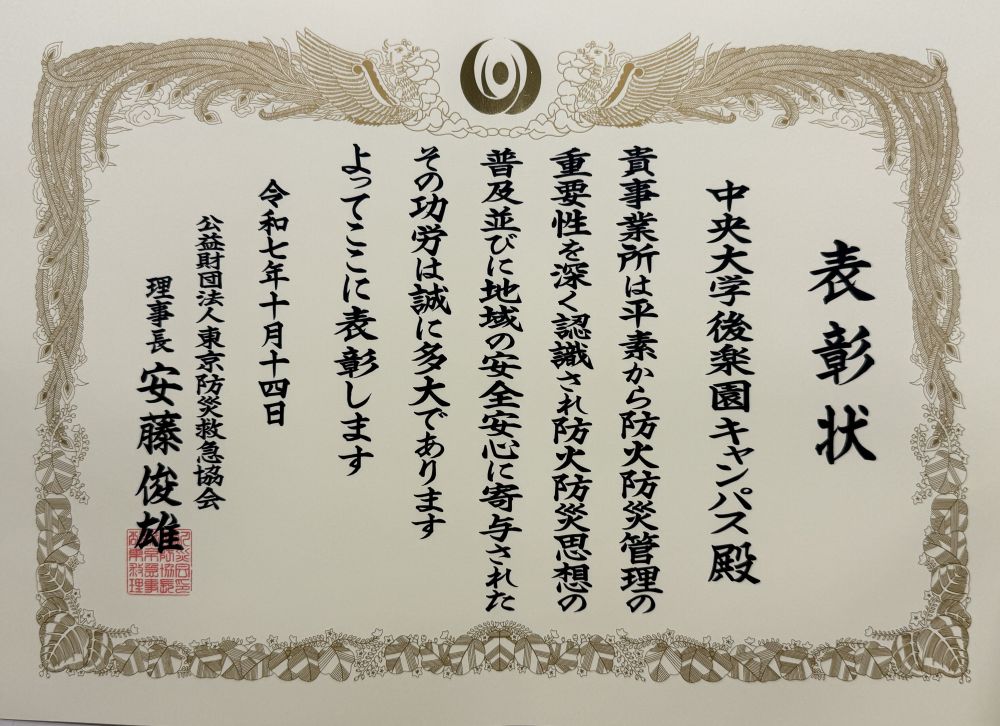 表彰状
中央大学後楽園キャンパス殿
貴事業所は平素から防火防災管理の
重要性を深く認識され防火防災思想の
普及並びに地域の安全安心に寄与された
その功労は誠に多大であります
よってここに表彰します
令和七年十月十四日
公益財団法人東京防災救急協会
理事長 安藤俊雄